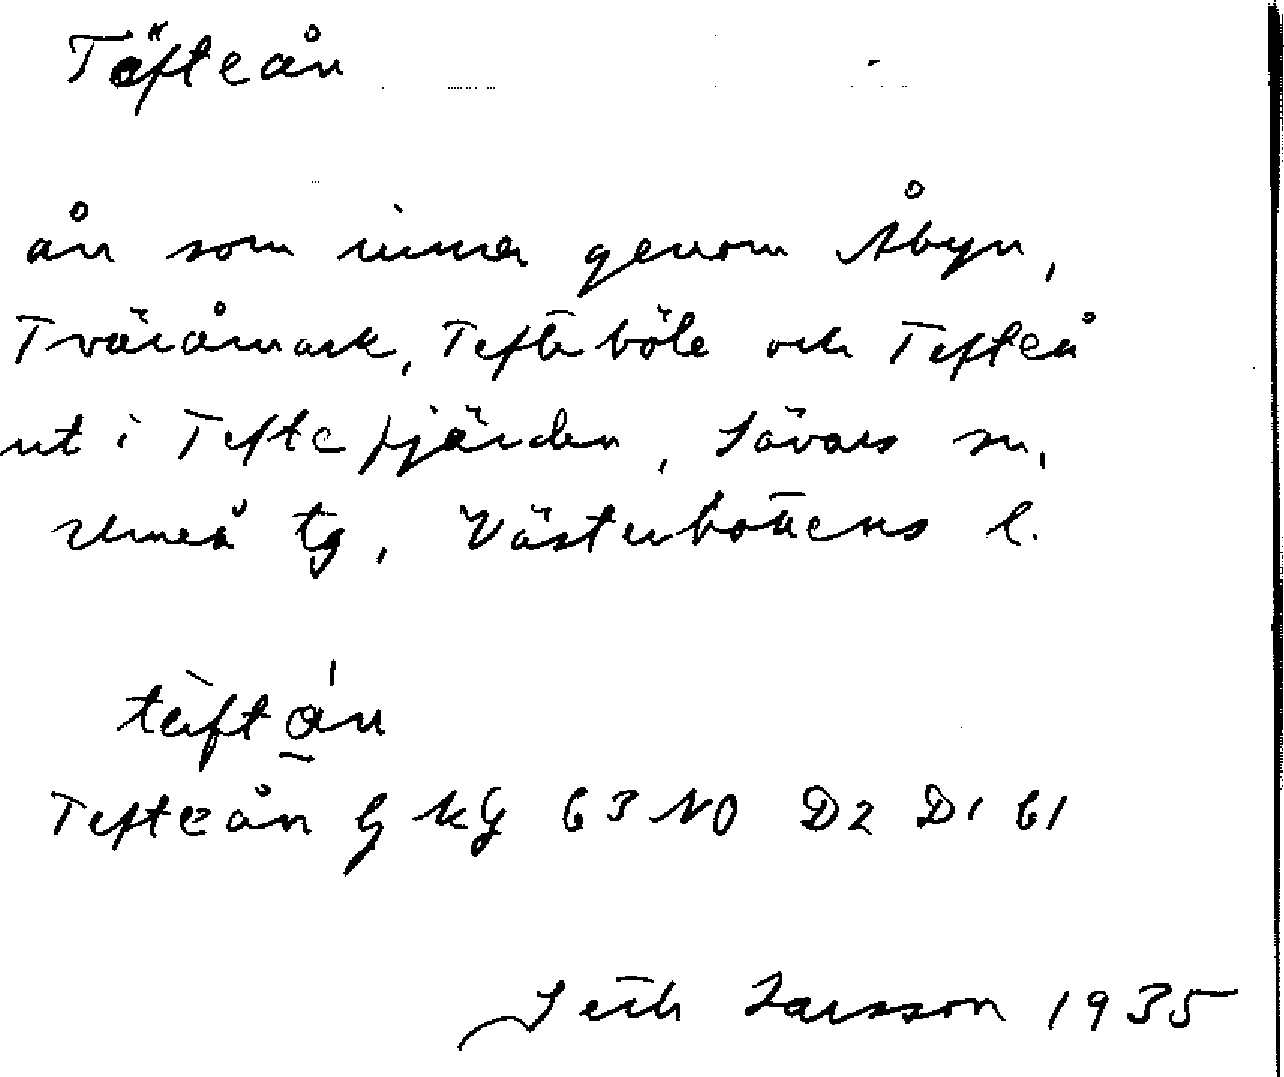 Täfteån
ån som rinner genom Åbyn,
Tväråmark, Tefteböle och Tefteå
ut i Teftefjärden, Sävars sn,
Umeå tg, Västerbottens l.
täftån
Tefteån G kg 63 NO D2 D1 61
Seth Larsson 1935